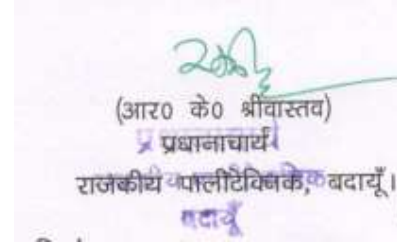 (आर० के० श्रीवास्तव)
प्रधानाचार्य
राजकीय पालीटेक्निक, बदायूँ।
बदायूँ